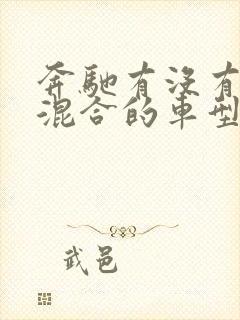 奔馳有沒有
混合的車型
武邑